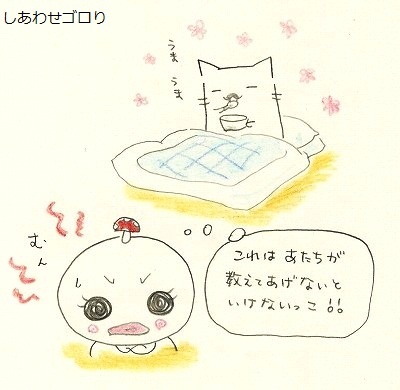 しあわせゴロり
うま
うま
むん
これは あたちが
教えてあげないと
いけないっこ !!